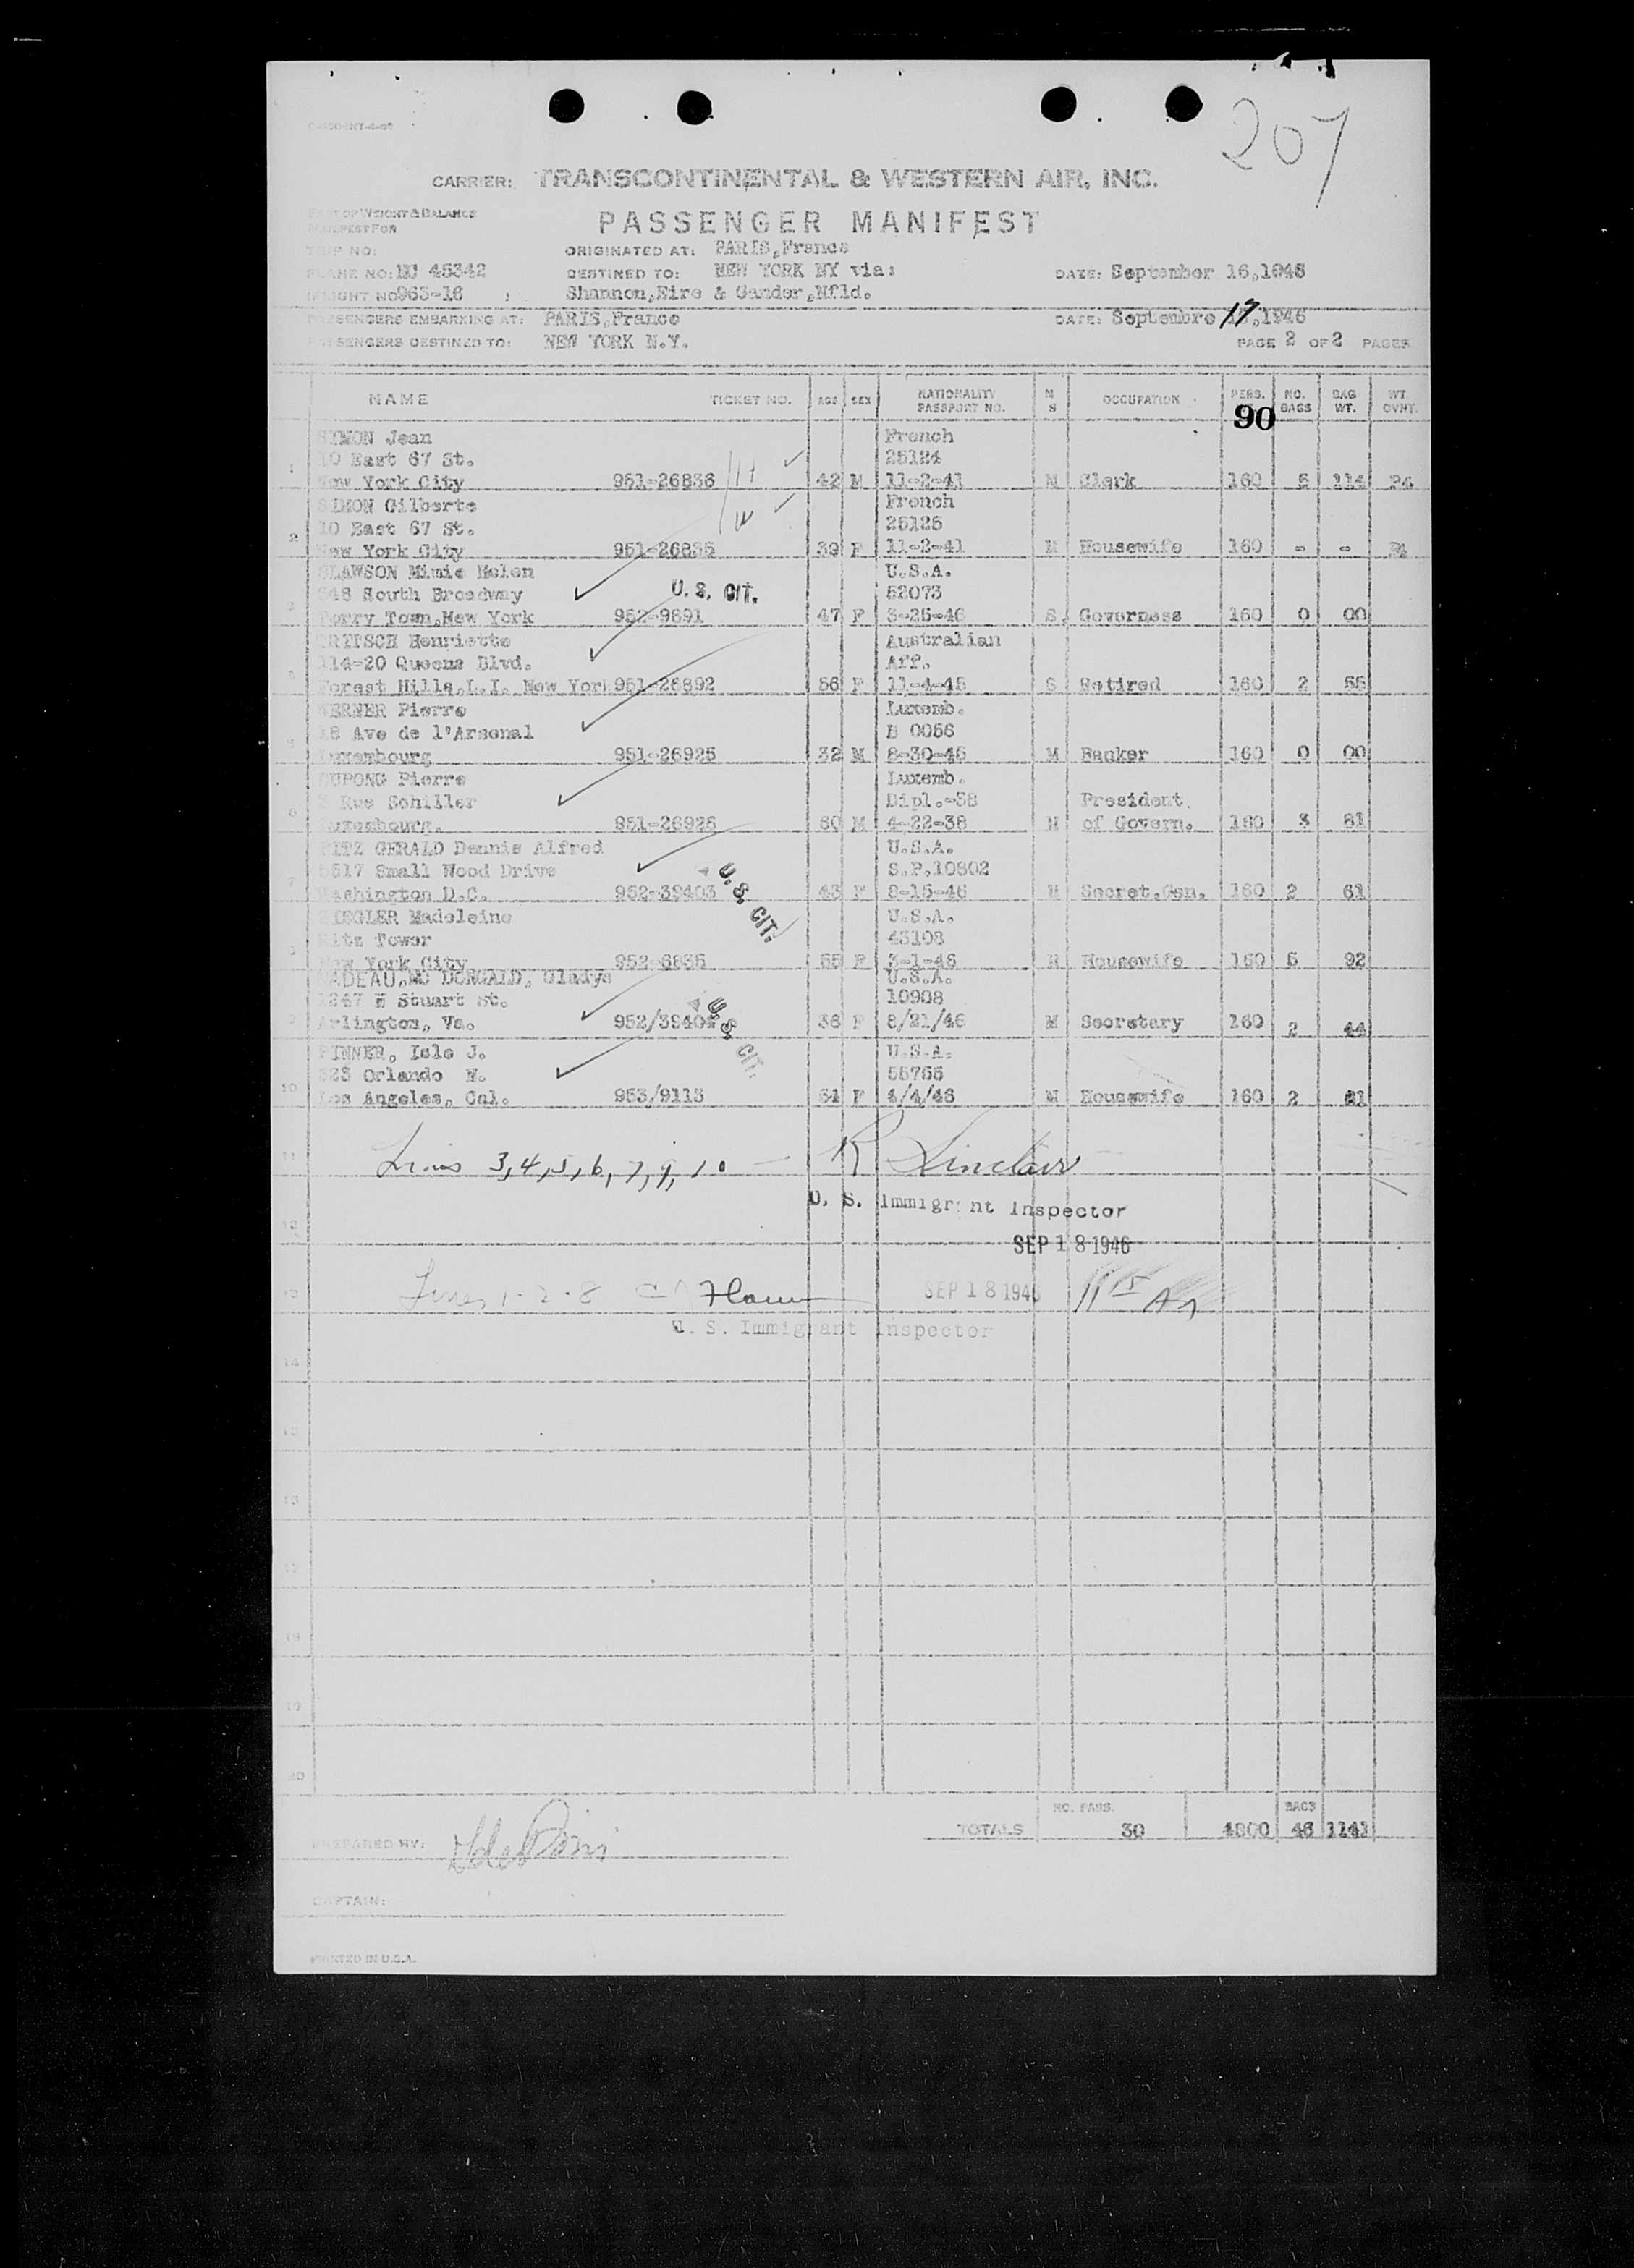 207
CARRIER: TRANSCONTINENTAL & WESTERN AIR, INC.
PART OF WEIGHT & BALANCE
MANIFEST FOR
PASSENGER MANIFEST
TRIP NO: ORIGINATED AT: PARIS,France
PLANE NO: 45342 DESTINED TO: NEW YORK NY via: DATE: September 16,1946
FLIGHT NO 963-16 Shannon,Eire & Gander,Nfld.
PASSENGERS EMBARKING AT: PARIS,France DATE: Septembre 17,1946
PASSENGERS DESTINED TO: NEW YORK N.Y. PAGE 2 OF 2 PAGES
NAME TICKET NO. AGE SEX NATIONALITY PASSPORT NO. M S OCCUPATION PERS. NO. BAGS BAG WT. WT. OVNT.
90
SIMON Jean French
10 East 67 St. 25124
1 New York City 951-26836 42 M 11-2-41 M Clerk 160 5 114
SIMON Gilberte French
10 East 67 St. 25125
2 New York City 951-26835 39 F 11-2-41 M Housewife 160 - -
SLAWSON Mimie Helen U.S.A.
548 South Broadway U. S. CIT. 52073
3 Terry Town,New York 952-9691 47 F 3-25-46 S Governess 160 0 00
FRITSCH Henriette Australian
114-20 Queens Blvd. Aff.
4 Forest Hills,L.I. New Yor 951-26892 56 F 11-4-45 S Retired 160 2 55
WERNER Pierre Luxemb.
18 Ave de l'Arsenal B 0056
5 Luxembourg 951-26925 32 M 8-30-45 M Banker 160 0 00
DUPONG Pierre Luxemb.
3 Rue Schiller Dipl.-58 President
6 Luxembourg. 951-26926 60 M 4-22-38 M of Govern. 160 3 81
FITZ GERALD Dennis Alfred U.S.A.
5617 Small Wood Drive S.P.10802
7 Washington D.C. 952-39403 U. S. CIT. 43 F 8-15-46 M Secret.Gen. 160 2 61
ZIEGLER Madeleine U.S.A.
Ritz Tower 43108
8 New York City 952-6835 55 F 3-1-46 M Housewife 160 5 92
NADEAU,MC DONGALD, Gladys U.S.A.
1247 N Stuart St. 10908
9 Arlington, Va. 952/39404 U. S. CIT. 36 F 8/21/46 M Secretary 160 2 44
PINNER, Isle J. U.S.A.
323 Orlando N. 55755
10 Los Angeles, Cal. 953/9113 54 F 4/4/46 M Housewife 160 2 61
11 Lines 3,4,5,6,7,9,10 - R Sinclair
U. S. Immigrant Inspector
12
SEP 18 1946
13 Lines 1-2-8 SEP 18 1946 11 15 AM
U. S. Immigrant Inspector
14
15
16
17
18
19
20
NO. PASS. BAGS
TOTALS 30 4800 46 1141
PREPARED BY:
CAPTAIN:
PRINTED IN U.S.A.